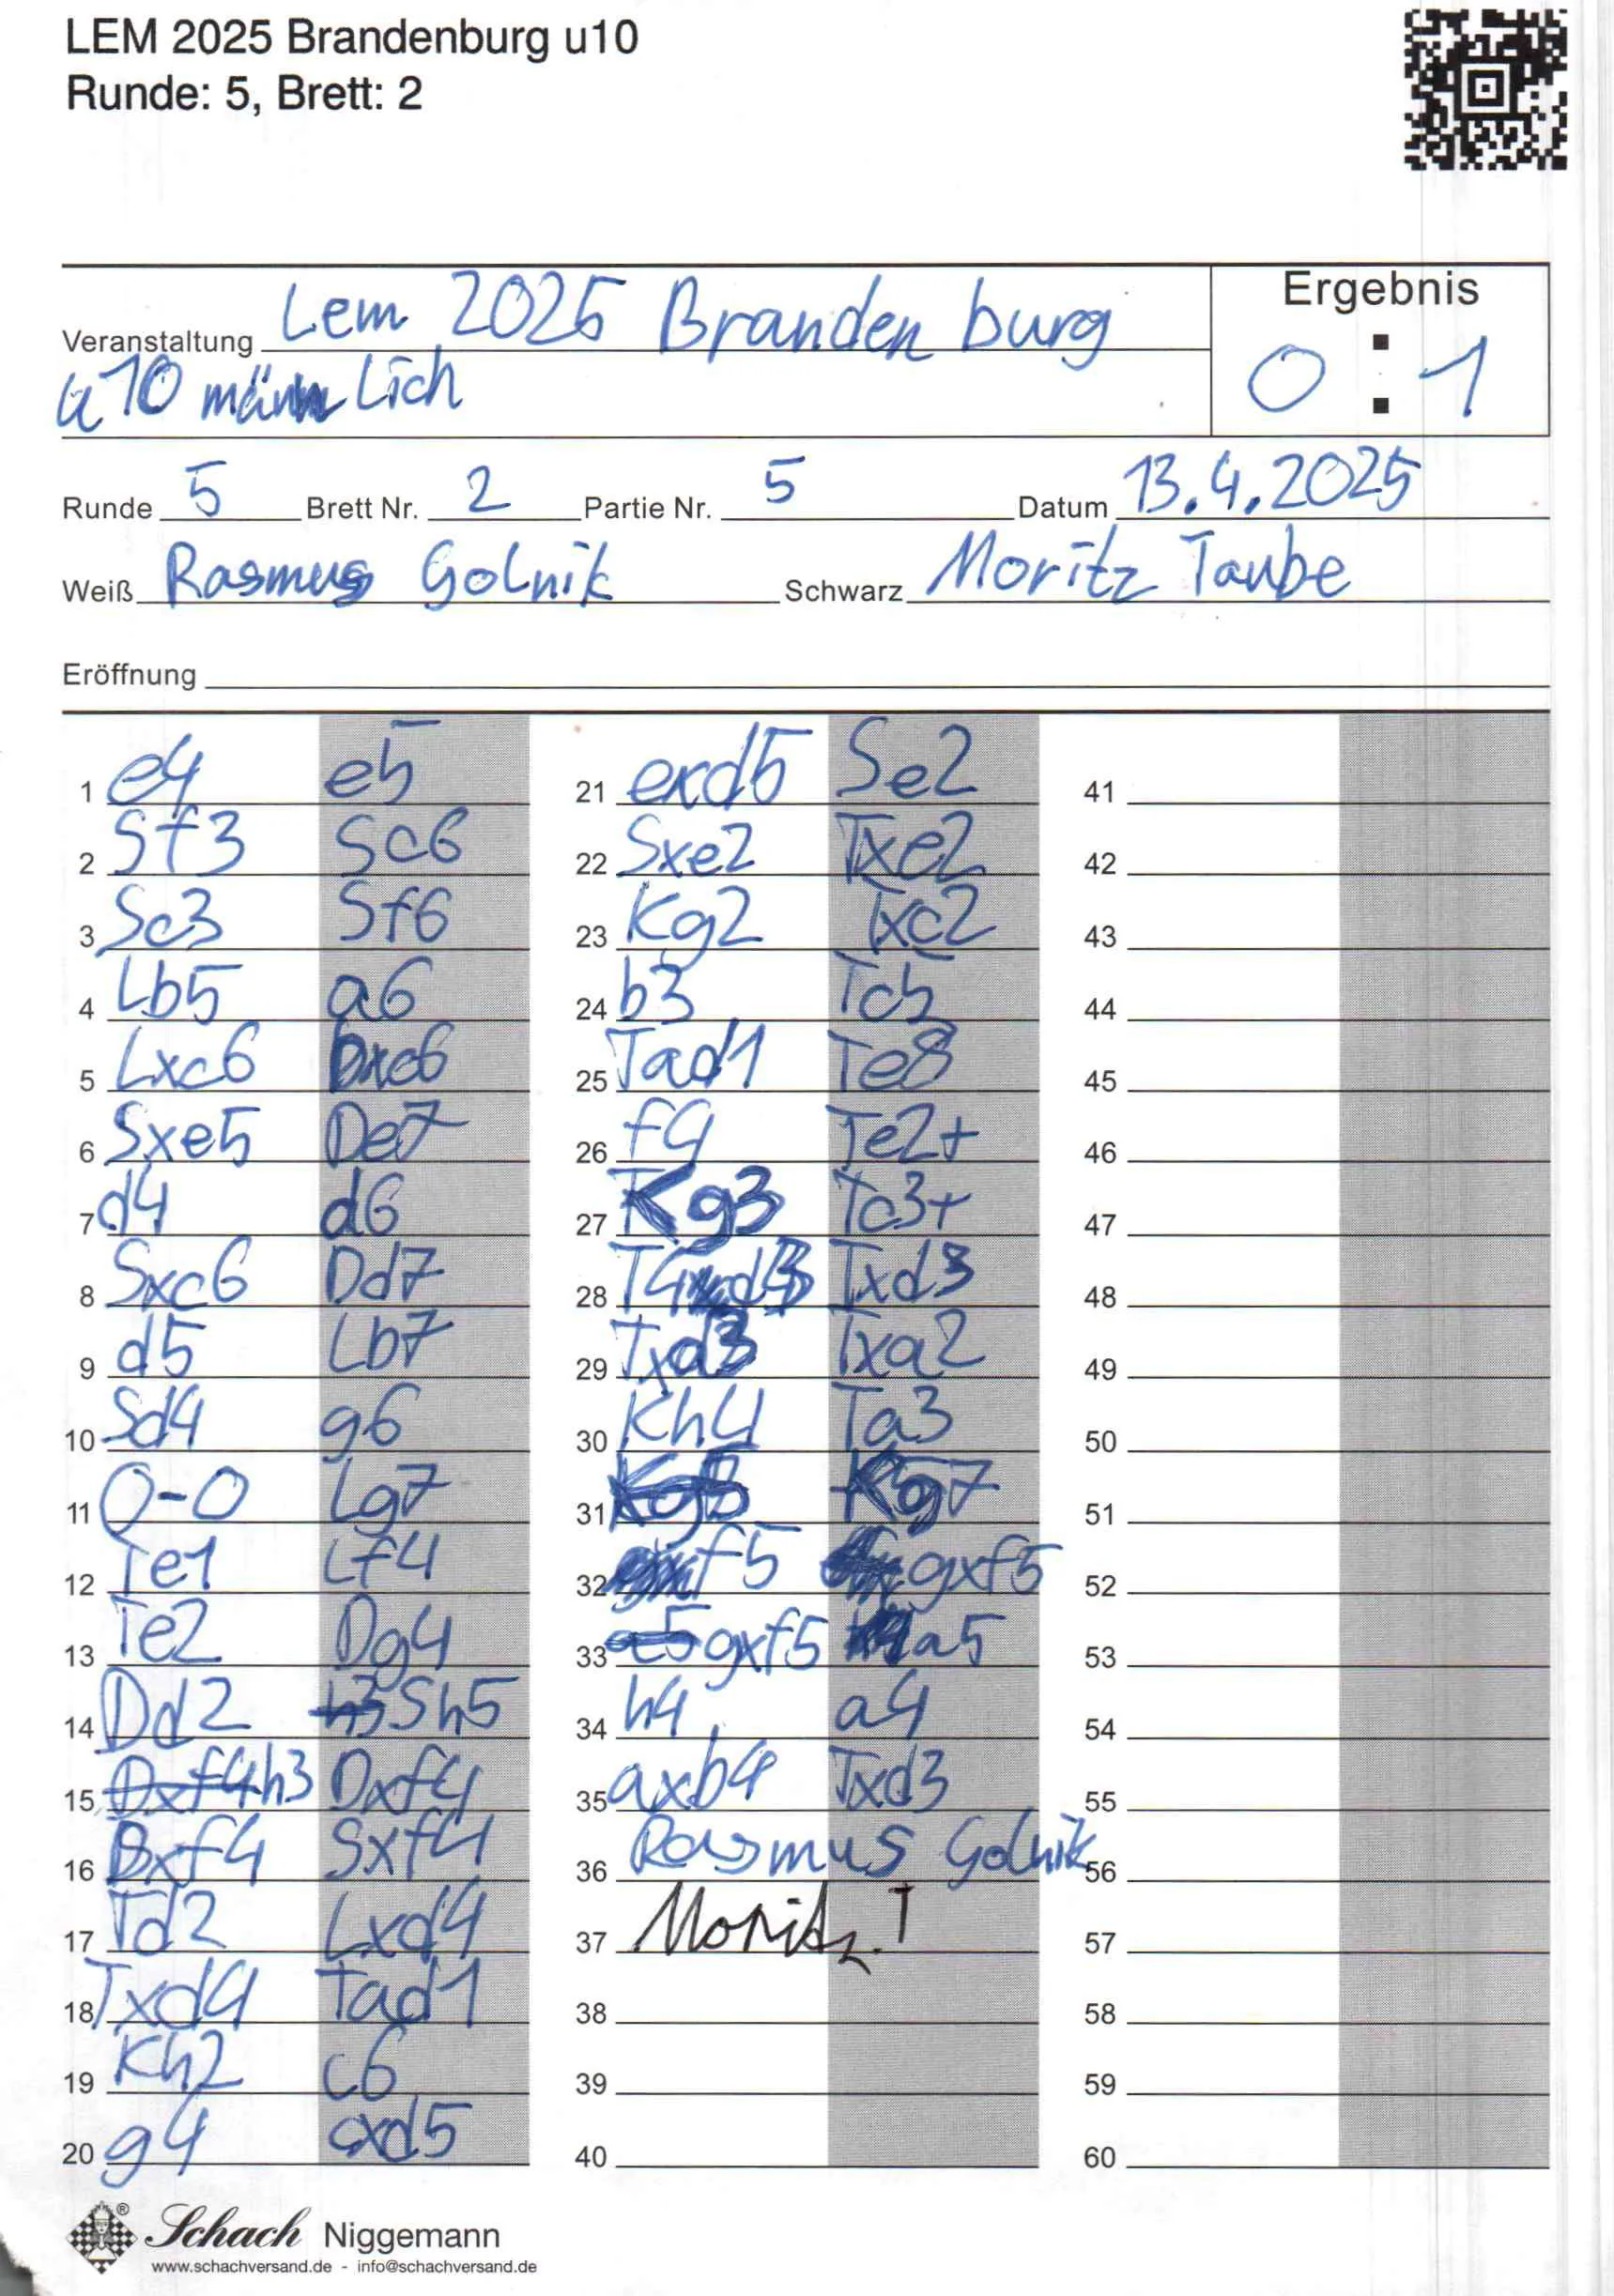 LEM 2025 Brandenburg u10
Runde: 5, Brett: 2
Ergebnis
Veranstaltung Lem 2025 Brandenburg
u10 männlich
0 : 1
Runde 5 Brett Nr. 2 Partie Nr. 5 Datum 13.4.2025
Weiß Rasmus Golnik Schwarz Moritz Taube
Eröffnung
1 e4 e5
2 Sf3 Sc6
3 Sc3 Sf6
4 Lb5 a6
5 Lxc6 bxc6
6 Sxe5 De7
7 d4 d6
8 Sxc6 Dd7
9 d5 Lb7
10 Sd4 g6
11 0-0 Lg7
12 Te1 Lf4
13 Te2 Dg4
14 Dd2 h3 Sh5
15 Dxf4 h3 Dxf4
16 Bxf4 Sxf4
17 Td2 Lxd4
18 Txd4 Tad1
19 Kh2 c6
20 g4 cxd5
21 exd5 Se2
22 Sxe2 Txe2
23 Kg2 Txc2
24 b3 Tc5
25 Tad1 Te8
26 f4 Te2+
27 Kg3 Tc3+
28 Txd3
29 Txd3 Txa2
30 Kh4 Ta3
31 Kg7
32 f5 gxf5
33 gxf5 a5
34 h4 a4
35 axb4 Txd3
36 Rasmus Golnik
37 Moritz.T
38
39
40
41
42
43
44
45
46
47
48
49
50
51
52
53
54
55
56
57
58
59
60
Schach Niggemann
www.schachversand.de - info@schachversand.de